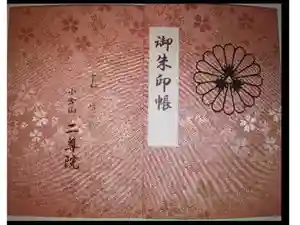 御朱印帳
小倉山
二尊院